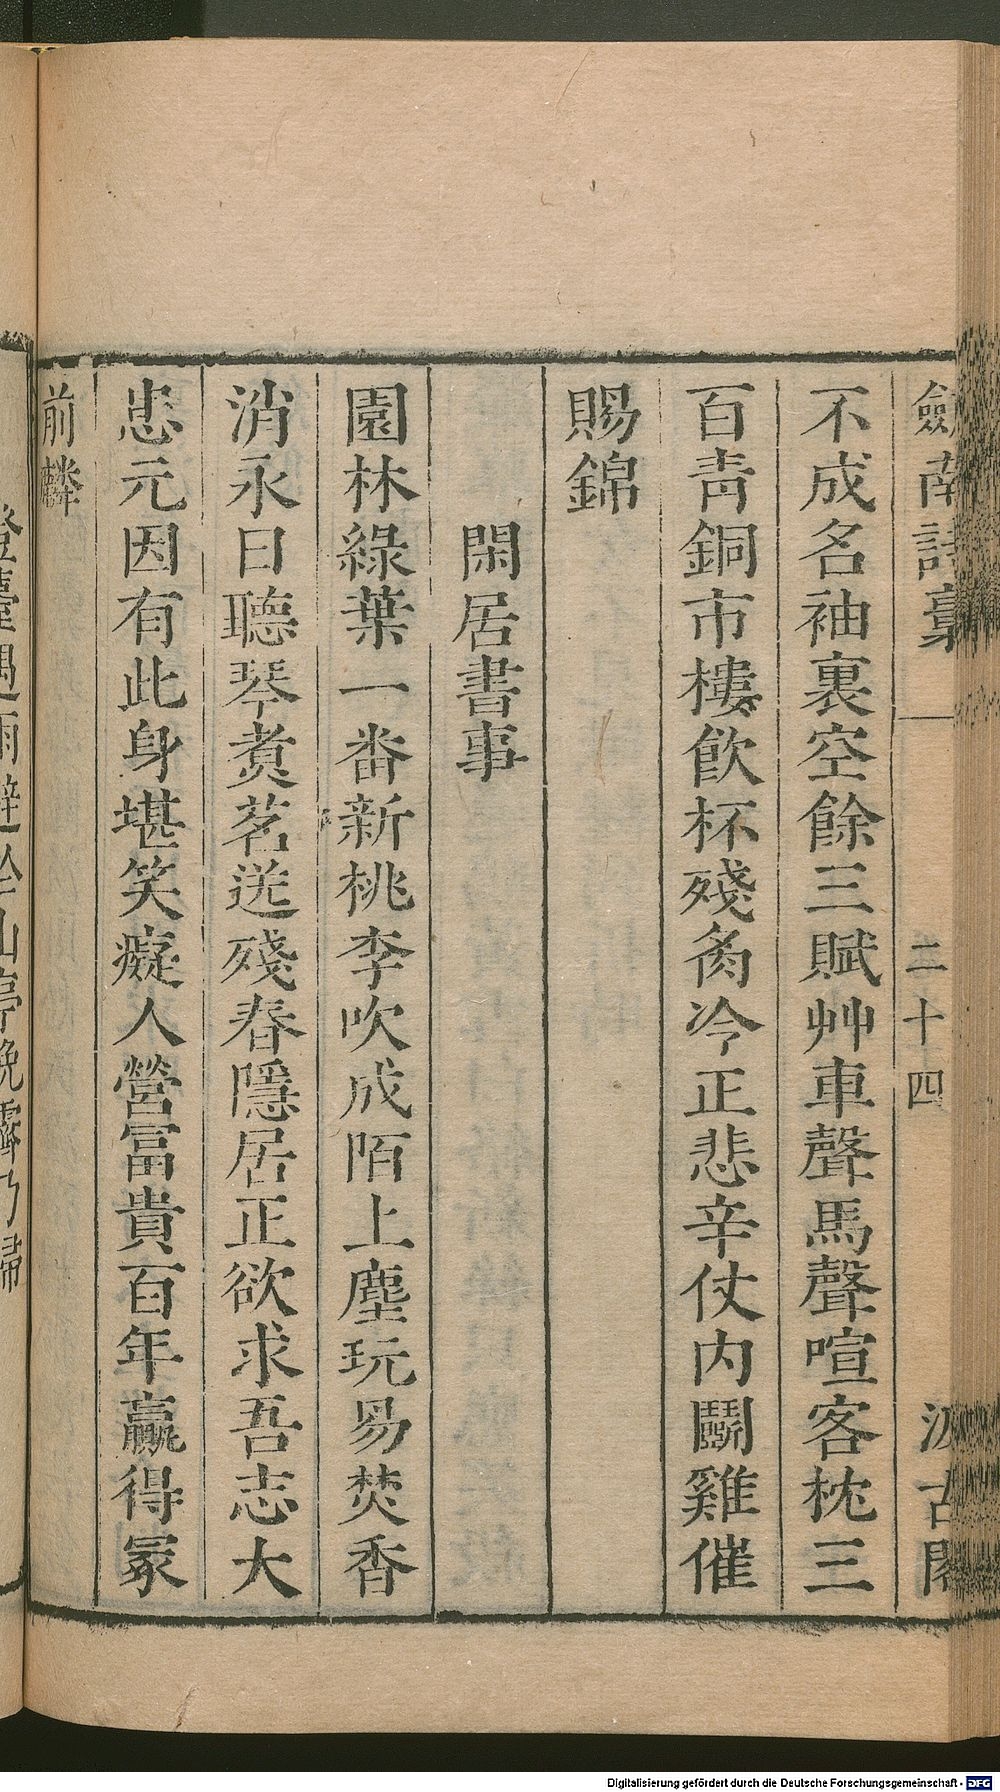 劒南詩稾 二十四 汲古閣
不成名袖裏空餘三賦艸車聲馬聲喧客枕三
百靑銅市樓飮杯殘胾冷正悲辛仗内鬭雞催
賜錦
閑居書事
園林綠葉一畨新桃李吹成陌上塵玩易焚香
消永日聽琴煑茗送殘春隱居正欲求吾志大
患元因有此身堪笑癡人營富貴百年贏得冡
前麟
遇雨避於山亭晚霽乃歸
Digitalisierung gefördert durch die Deutsche Forschungsgemeinschaft - DFG